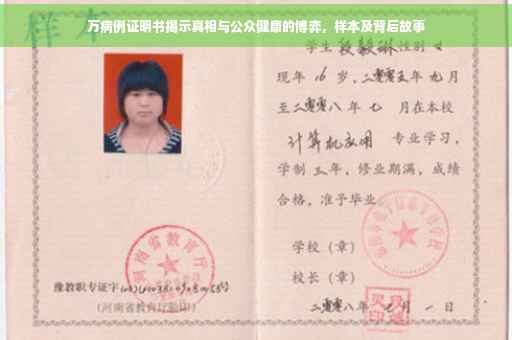 万病例证明书揭示真相与公众健康的博弈，样本及背后故事
样本
学生 段毅琳 性别 女
现年 16 岁，二零零五年 九月
至二零零八年 七 月在本校
计算机应用 专业学习，
学制 三年，修业期满，成绩
合格，准予毕业。
学校（章）
校长（章）
二零零八年 七月 一 日
河南省教育厅
豫教职专证字
（河南省教育厅验印）